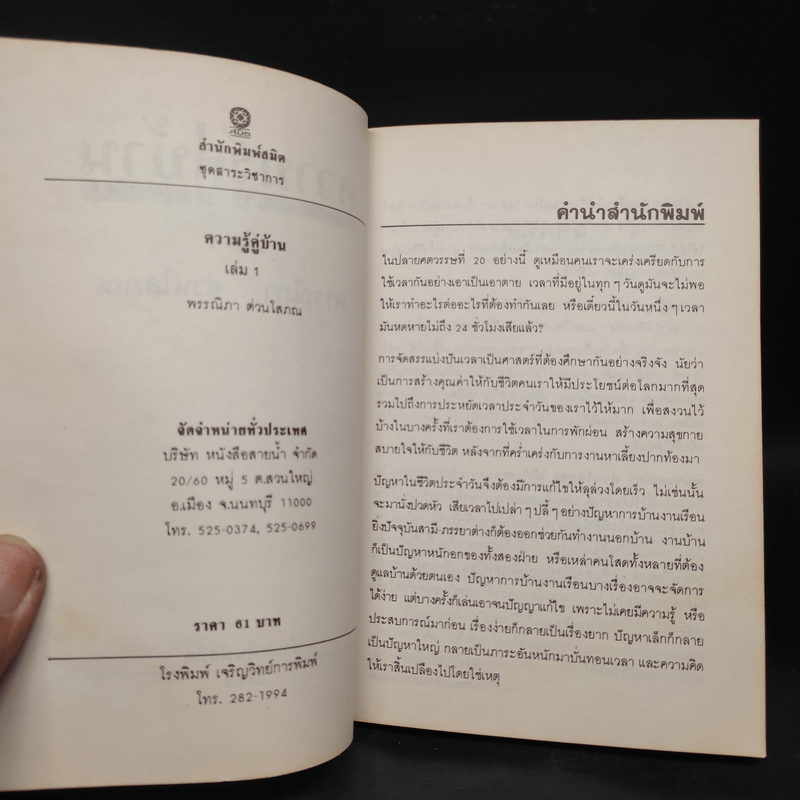 สมิต
สำนักพิมพ์สมิต
ชุดสาระวิชาการ
ความรู้คู่บ้าน
เล่ม 1
พรรณิภา ต่วนโสภณ
จัดจำหน่ายทั่วประเทศ
บริษัท หนังสือสายน้ำ จำกัด
20/60 หมู่ 5 ต.สวนใหญ่
อ.เมือง จ.นนทบุรี 11000
โทร. 525-0374, 525-0699
ราคา 61 บาท
โรงพิมพ์ เจริญวิทย์การพิมพ์
โทร. 282-1994
คำนำสำนักพิมพ์
ในปลายศตวรรษที่ 20 อย่างนี้ ดูเหมือนคนเราจะเคร่งเครียดกับการ
ใช้เวลากันอย่างเอาเป็นเอาตาย เวลาที่มีอยู่ในทุก ๆ วันดูมันจะไม่พอ
ให้เราทำอะไรต่ออะไรที่ต้องทำกันเลย หรือเดี๋ยวนี้ในวันหนึ่ง ๆ เวลา
มันหดหายไม่ถึง 24 ชั่วโมงเสียแล้ว?
การจัดสรรแบ่งปันเวลาเป็นศาสตร์ที่ต้องศึกษากันอย่างจริงจัง นัยว่า
เป็นการสร้างคุณค่าให้กับชีวิตคนเราให้มีประโยชน์ต่อโลกมากที่สุด
รวมไปถึงการประหยัดเวลาประจำวันของเราไว้ให้มาก เพื่อสงวนไว้
บ้างในบางครั้งที่เราต้องการใช้เวลาในการพักผ่อน สร้างความสุขกาย
สบายใจให้กับชีวิต หลังจากที่คร่ำเคร่งกับการงานหาเลี้ยงปากท้องมา
ปัญหาในชีวิตประจำวันจึงต้องมีการแก้ไขให้ลุล่วงโดยเร็ว ไม่เช่นนั้น
จะมานั่งปวดหัว เสียเวลาไปเปล่า ๆ ปลี้ ๆ อย่างปัญหาการบ้านงานเรือน
ยิ่งปัจจุบันสามี-ภรรยาต่างก็ต้องออกช่วยกันทำงานนอกบ้าน งานบ้าน
ก็เป็นปัญหาหนักอกของทั้งสองฝ่าย หรือเหล่าคนโสดทั้งหลายที่ต้อง
ดูแลบ้านด้วยตนเอง ปัญหาการบ้านงานเรือนบางเรื่องอาจจะจัดการ
ได้ง่าย แต่บางครั้งก็เล่นเอาจนปัญญาแก้ไข เพราะไม่เคยมีความรู้ หรือ
ประสบการณ์มาก่อน เรื่องง่ายก็กลายเป็นเรื่องยาก ปัญหาเล็กก็กลาย
เป็นปัญหาใหญ่ กลายเป็นภาระอันหนักมาบั่นทอนเวลา และความคิด
ให้เราสิ้นเปลืองไปโดยใช่เหตุ